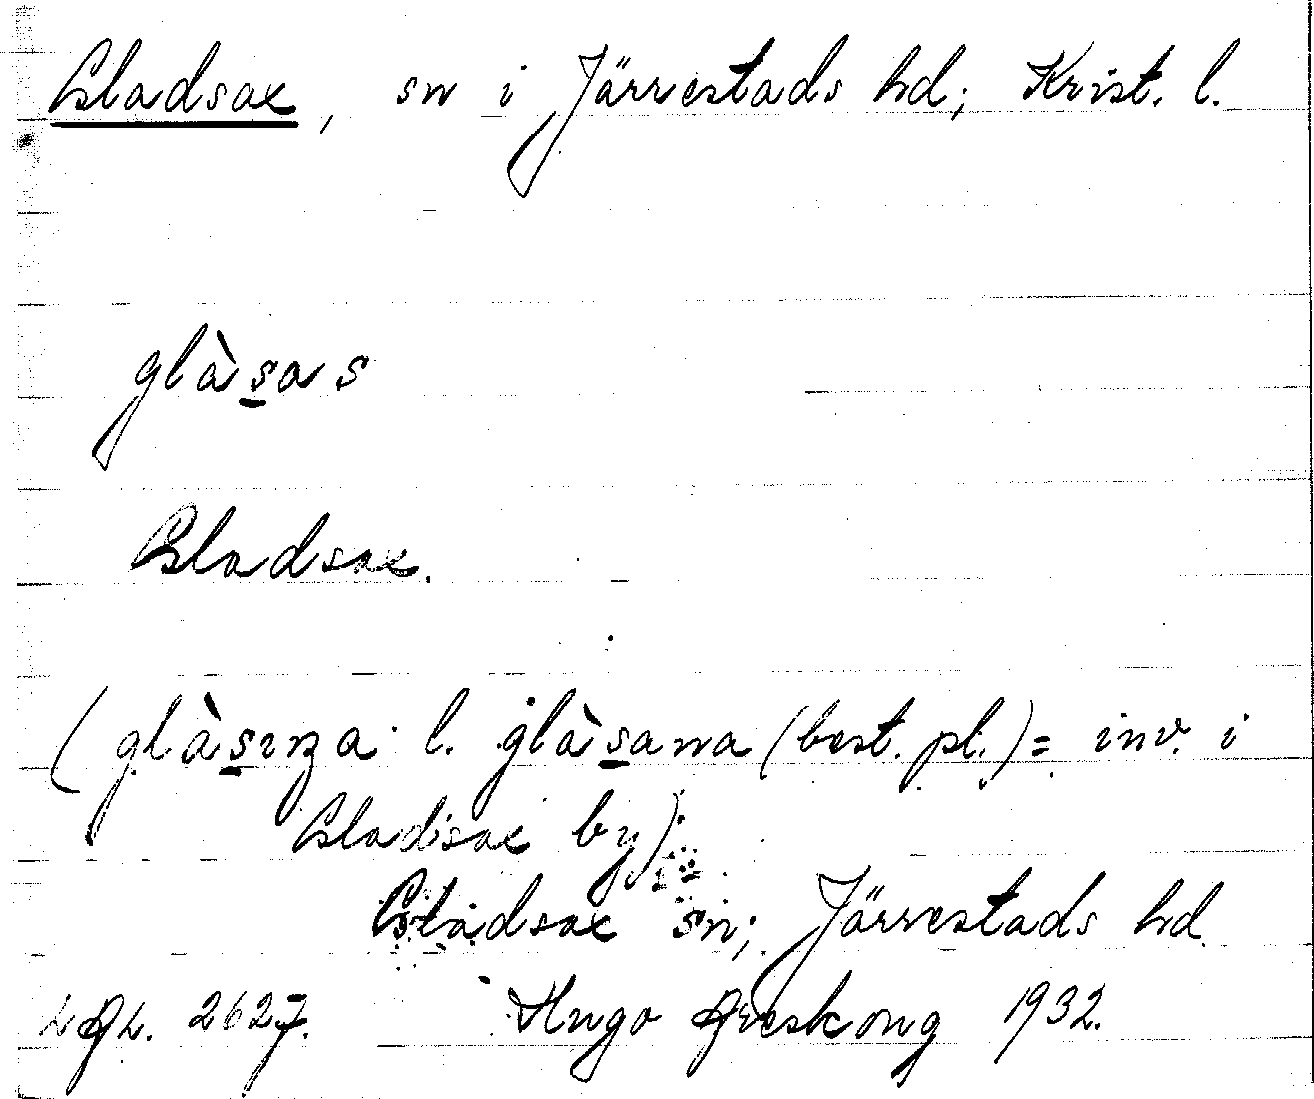 Gladsax, sn i Järrestads hd; Krist. l.
glàs̲as
Gladsax.
(glàs̲ıŋa l. glàs̲ana (best. pl.) = inv. i
Gladsax by);
Gladsax sn; Järrestads hd
2627. Hugo Areskoug 1932.